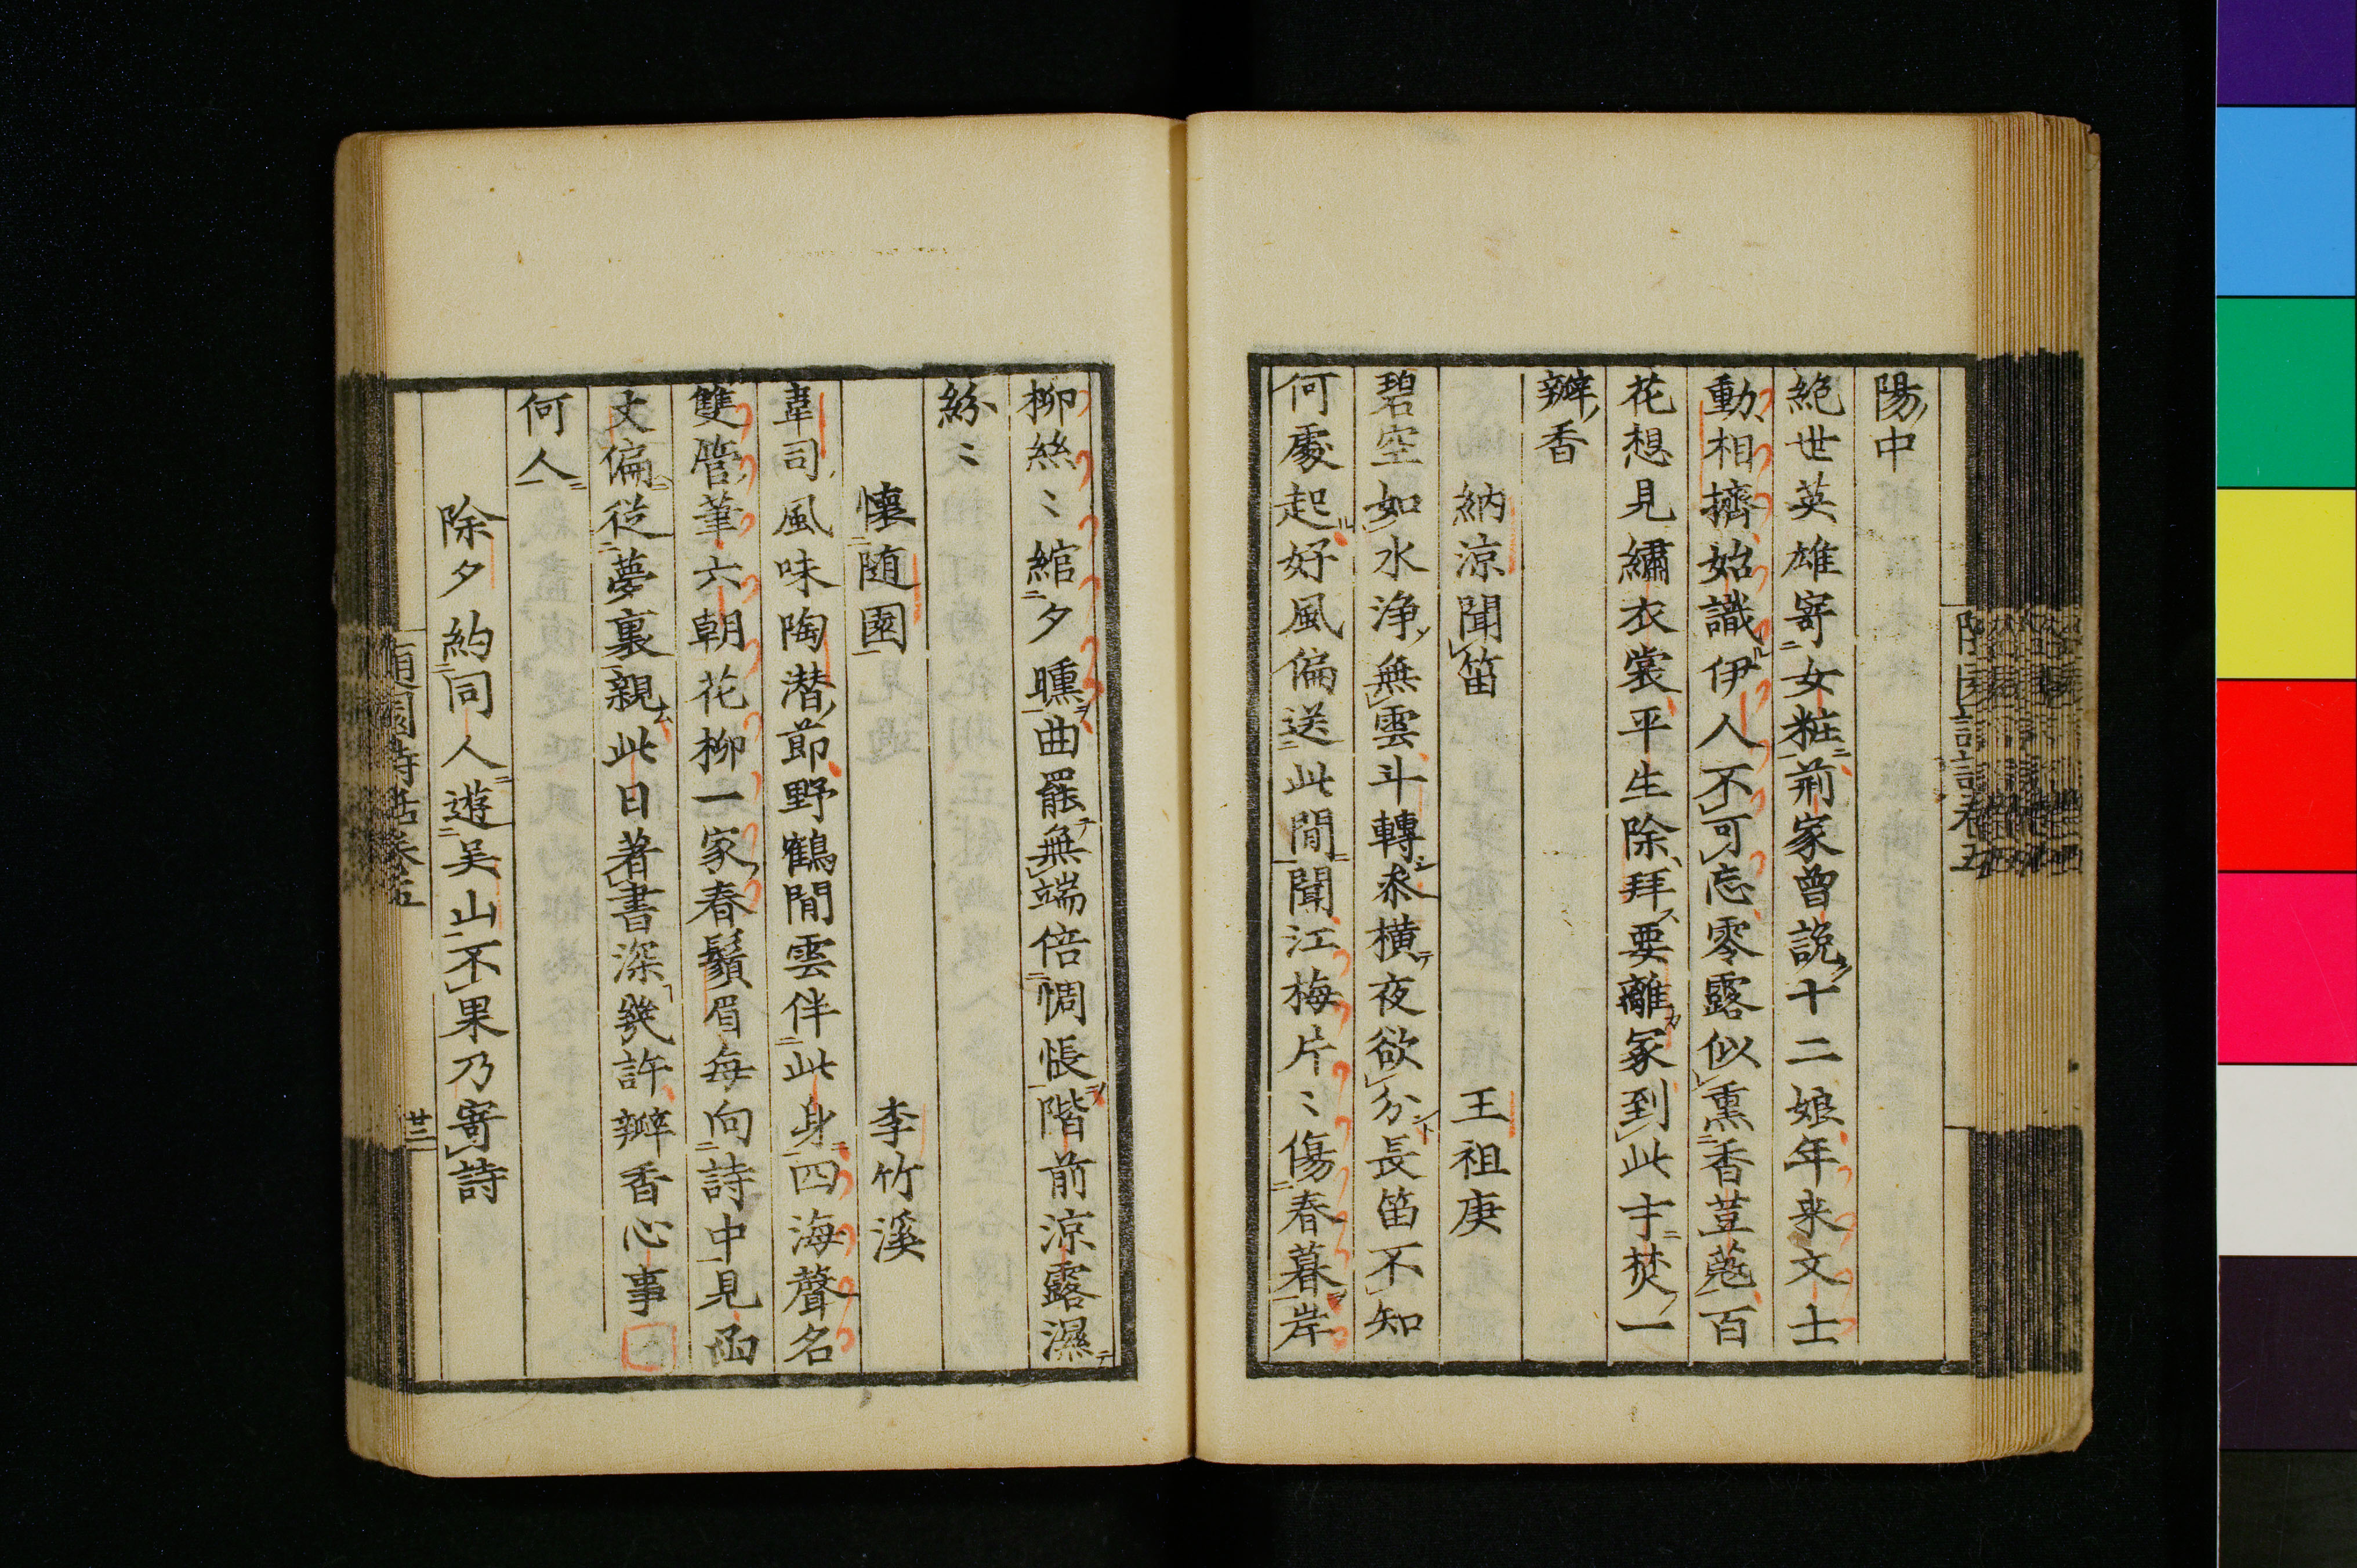 陽中
絶世英雄寄女粧荊家曾說十二娘年来文士
動相擠始識伊人不可忘零露似熏香荳蔻百
花想見繡衣裳平生除拜要離冢到此才焚一
瓣香
納涼聞笛　王祖庚
碧空如水浄無雲斗轉参横夜欲分長笛不知
何處起好風偏送此間聞江梅片〻傷春暮岸
柳絲〻綰夕曛曲罷無端倍惆悵階前涼露濕
紛〻
懐随園　李竹溪
韋司風味陶潜節野鶴閒雲伴此身四海聲名
雙管筆六朝花柳一家春鬚眉每向詩中見函
丈偏従夢裏親此日著書深幾許瓣香心事
何人
除夕約同人遊吴山不果乃寄詩
随園詩話巻五
廿三